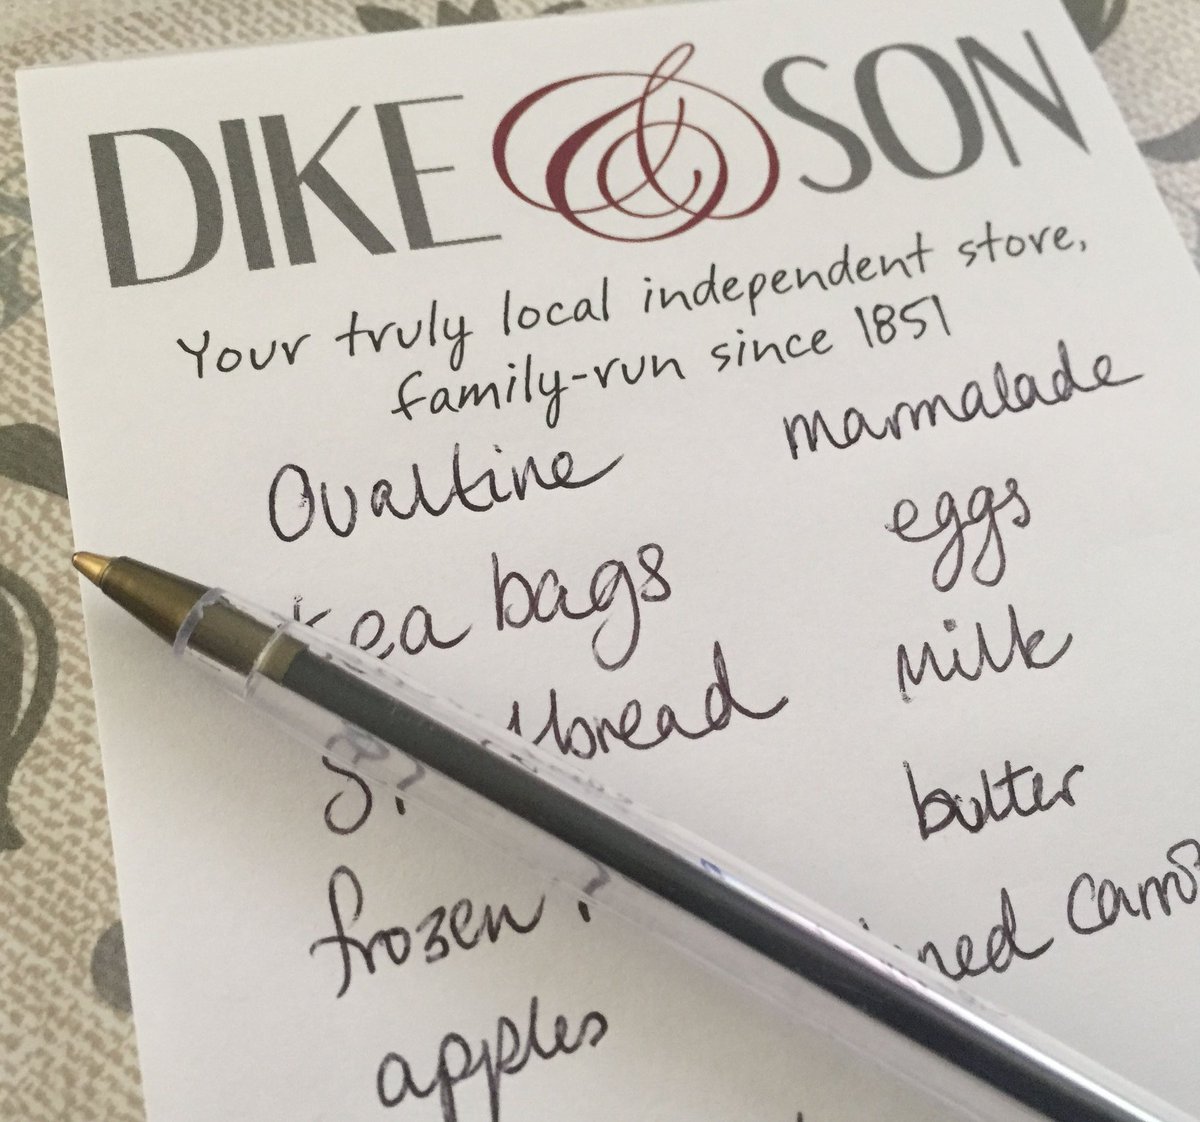 DIKE & SON
Your truly local independent store,
family-run since 1851
Ovaltine
tea bags
frozen ?
apples
marmalade
eggs
milk
butter